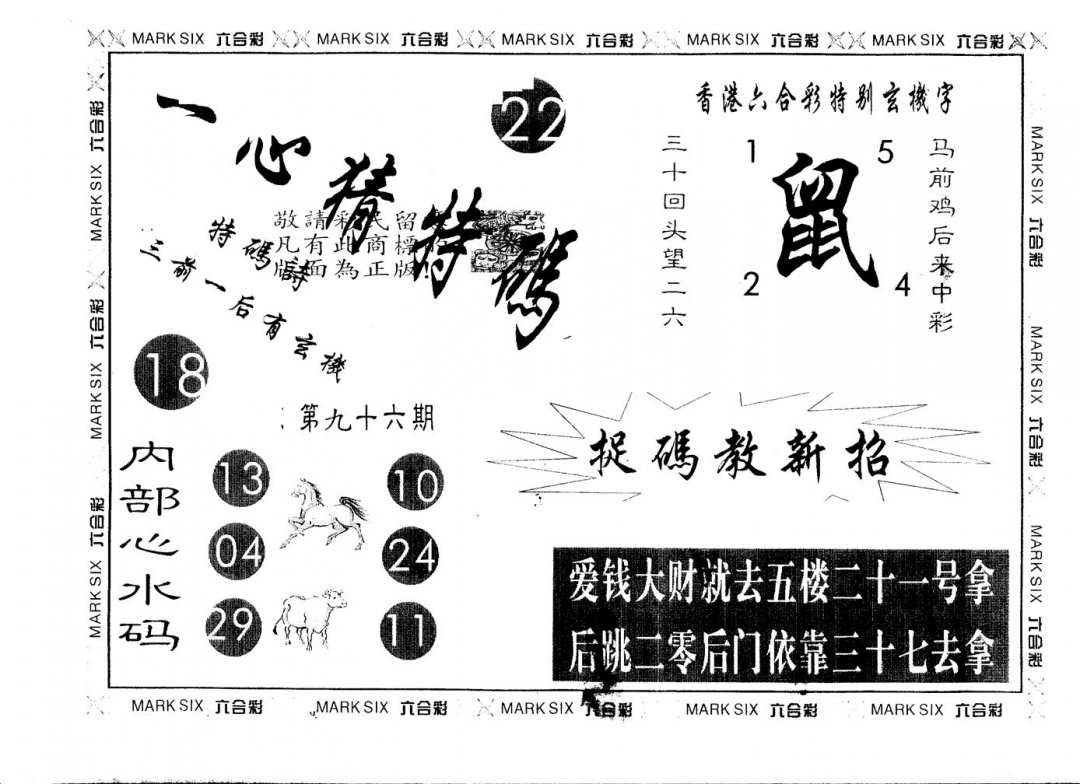 MARK SIX 六合彩 MARK SIX 六合彩 MARK SIX 六合彩 MARK SIX 六合彩 MARK SIX 六合彩
一心猜特碼
22
香港六合彩特别玄機字
三十回头望二六
1
5
鼠
2
4
马前鸡后来中彩
敬請彩民留
凡有此商標
版面為正版!
特碼詩
三前一后有玄機
18
第九十六期
内部心水码
13
10
04
24
29
11
捉碼教新招
爱钱大财就去五楼二十一号拿
后跳二零后门依靠三十七去拿
MARK SIX 六合彩
MARK SIX 六合彩
MARK SIX 六合彩
MARK SIX 六合彩
MARK SIX 六合彩
MARK SIX 六合彩
MARK SIX 六合彩 MARK SIX 六合彩 MARK SIX 六合彩 MARK SIX 六合彩 MARK SIX 六合彩